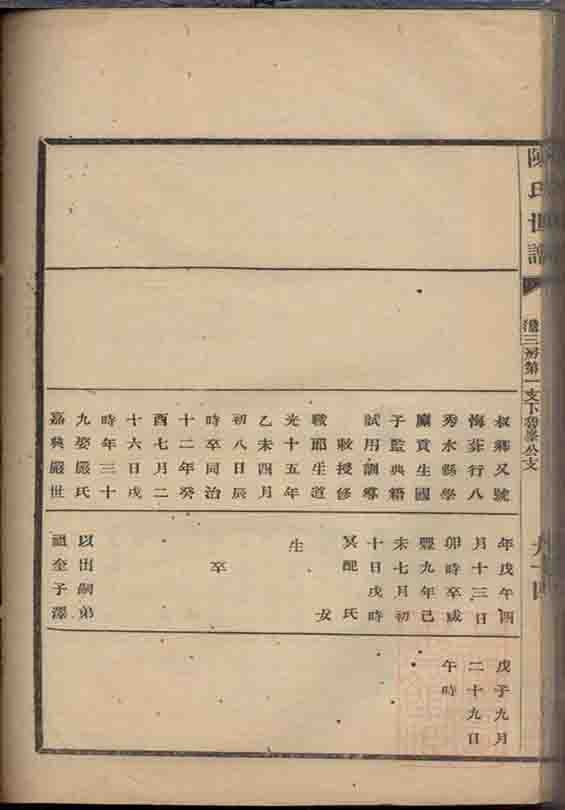 陳氏世譜
三房第一支下公支
九十四
叔卿又號
悔菴行八
秀水縣學
廩貢生國
子監典籍
試用訓導
敕授修
職郎生道
光十五年
乙未四月
初八日辰
時卒同治
十二年癸
酉七月二
十六日戌
時年三十
九娶嚴氏
嘉典嚴世
年戊午四
月十三日
卯時卒咸
豐九年己
未七月初
十日戌時
冥配 氏
女
生
卒
以嗣弟
祖金子澤
戊子九月
二十九日
午時